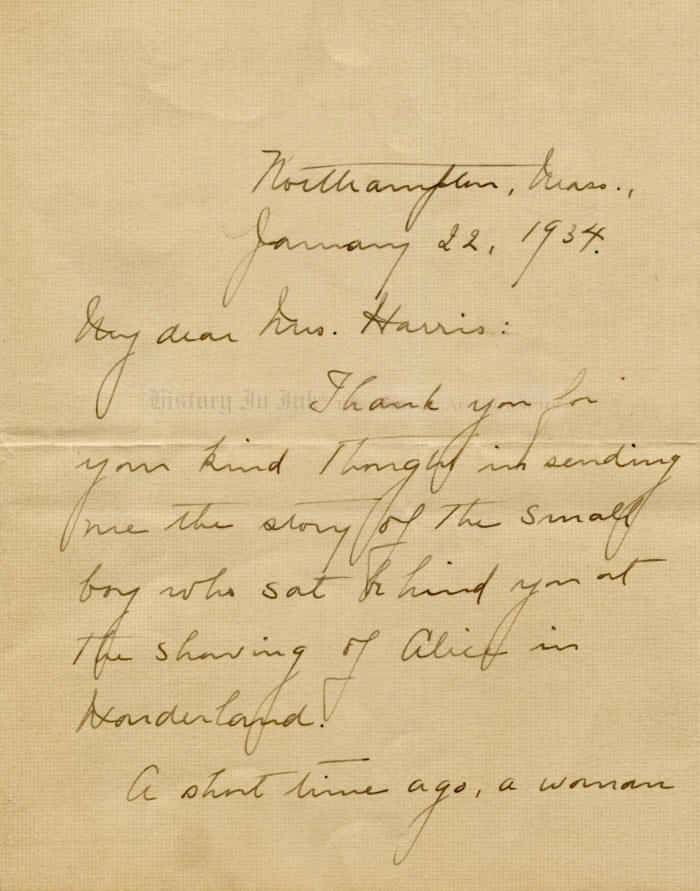 Northampton, Mass.,
January 22, 1934.
My dear Mrs. Harris:
History In Ink
Thank you for
your kind thought in sending
me the story of the small
boy who sat behind you at
the showing of Alice in
Wonderland.
A short time ago, a woman